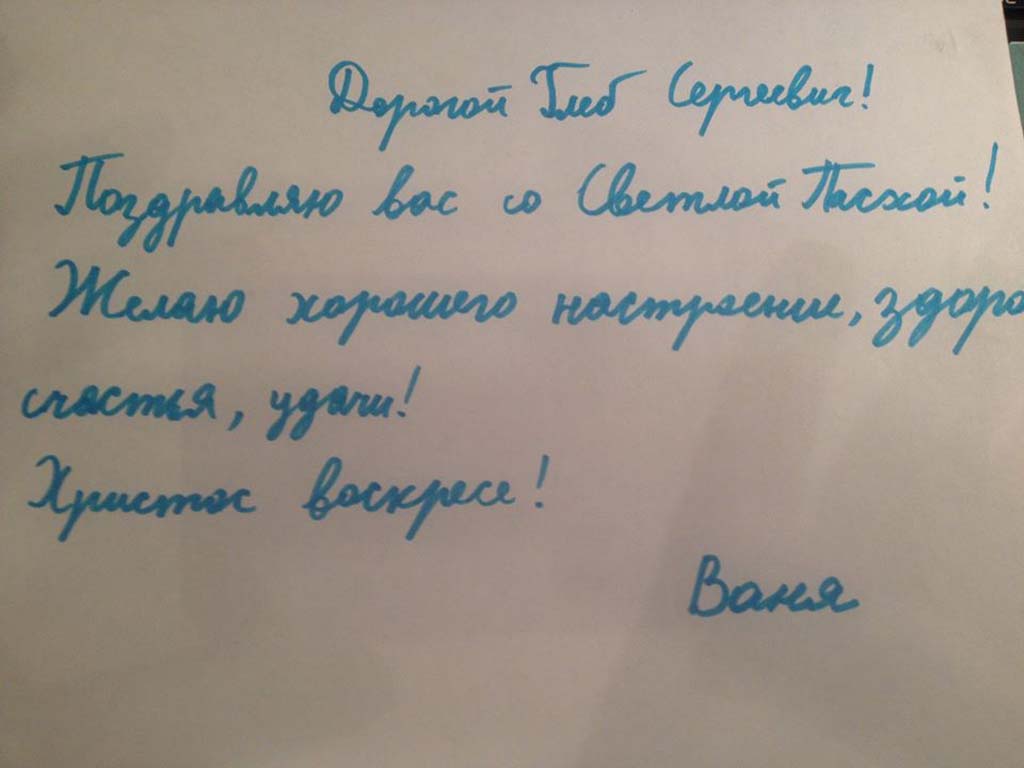 Дорогой Глеб Сергеевич!
Поздравляю вас со Светлой Пасхой!
Желаю хорошего настроении, здоро
счастья, удачи!
Христос воскресе!
Ваня